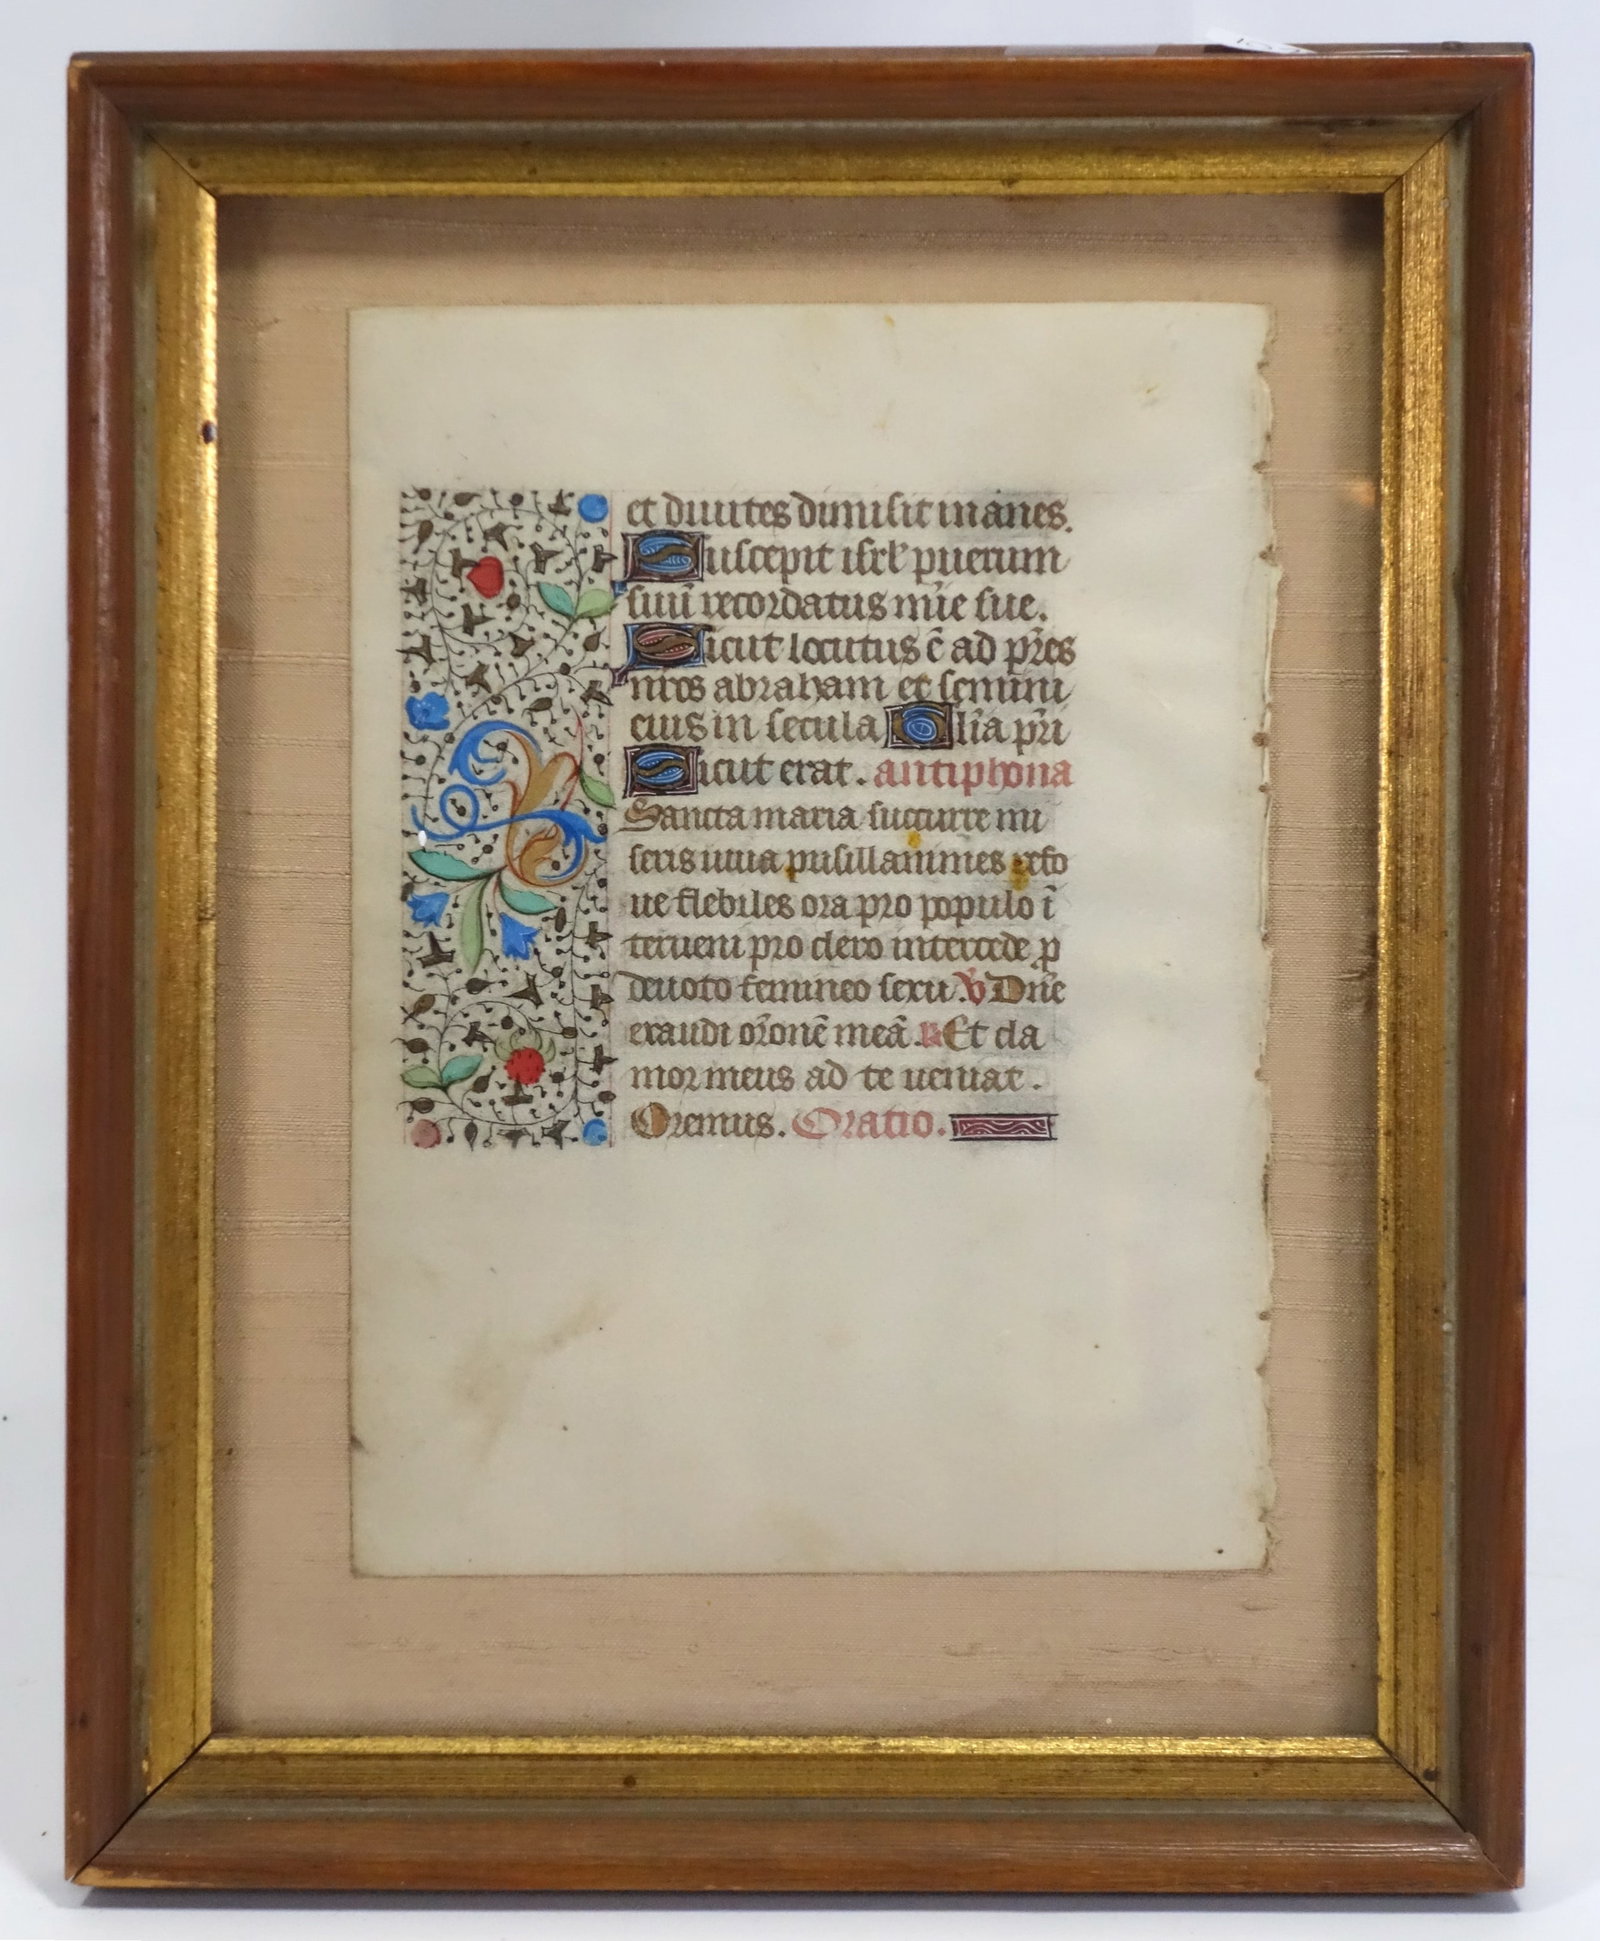 et diuites dimisit inanes.
Suscepit isrl puerum
suū recordatus mīe sue.
Sicut locutus ē ad p̄res
nros abraham et semini
eius in secula Glīa pr̄i
Sicut erat. antiphona
Sancta maria succurre mi
seris iuua pusillanimes refo
ue flebiles ora pro populo ī
terueni pro clero intercede p
deuoto femineo sexu. V Dn̄e
exaudi or̄onē meā. R Et cla
mor meus ad te ueniat.
Oremus. Oratio.